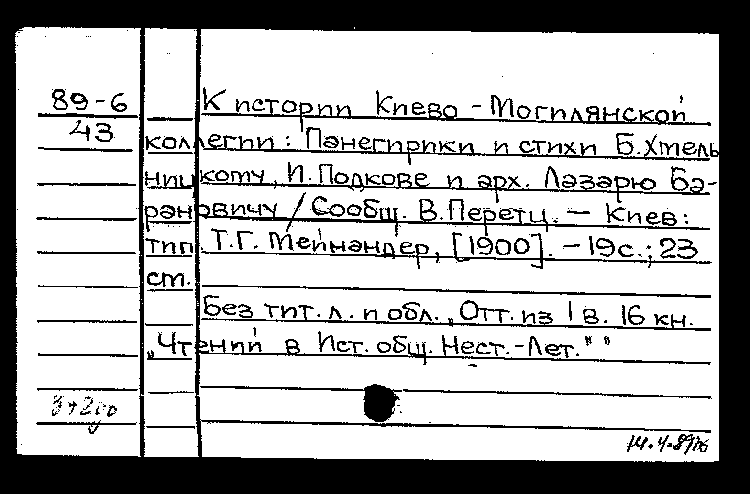 89-6
43
К истории Киево-Могилянской
коллегии: Панегирики и стихи Б. Хмель
ницкому, И. Подкове и арх. Лазарю Ба-
рановичу / Сообщ. В. Перетц. — Киев:
тип. Т.Г. Мейнандер, [1900]. — 19с.; 23
см.
Без тит. л. и обл., Отт. из 1 в. 16 кн.
„Чтений в Ист. общ. Нест.-Лет.""